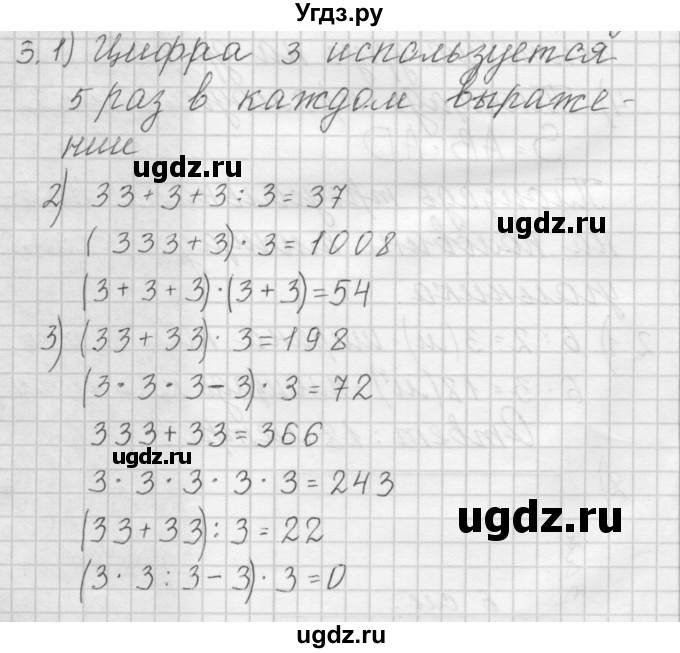 Угдз.ру
3. 1) Цифра 3 используется
5 раз в каждом выраже-
нии
ugdz.ru
2) 33+3+3:3=37
ugdz.ru
(333+3)·3=1008
(3+3+3)·(3+3)=54
3) (33+33)·3=198
(3·3·3-3)·3=72
333+33=366
ugdz.ru
3·3·3·3·3=243
ugdz.ru
(33+33):3=22
(3·3:3-3)·3=0
ugdz.ru